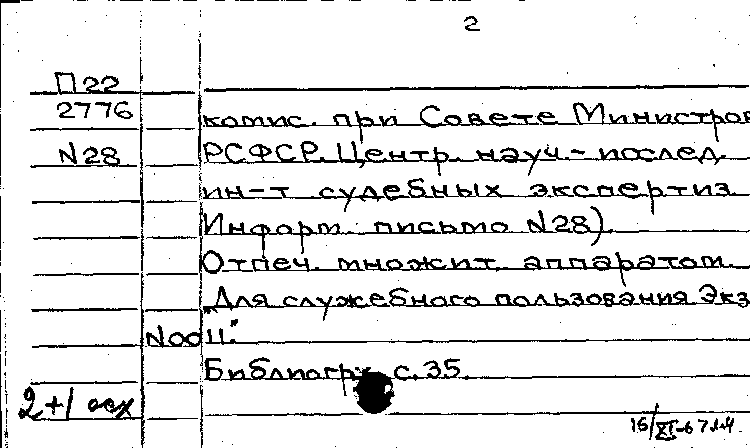 2
П22
2776 комис. при Совете Министров
N28 РСФСР. Центр. науч.-послед.
ин-т судебных экспертиз
Информ. письмо N28).
Отпеч. множит. аппаратом.
„Для служебного пользования Экз
N0011."
Библиогр. с. 35.
2+1 осх